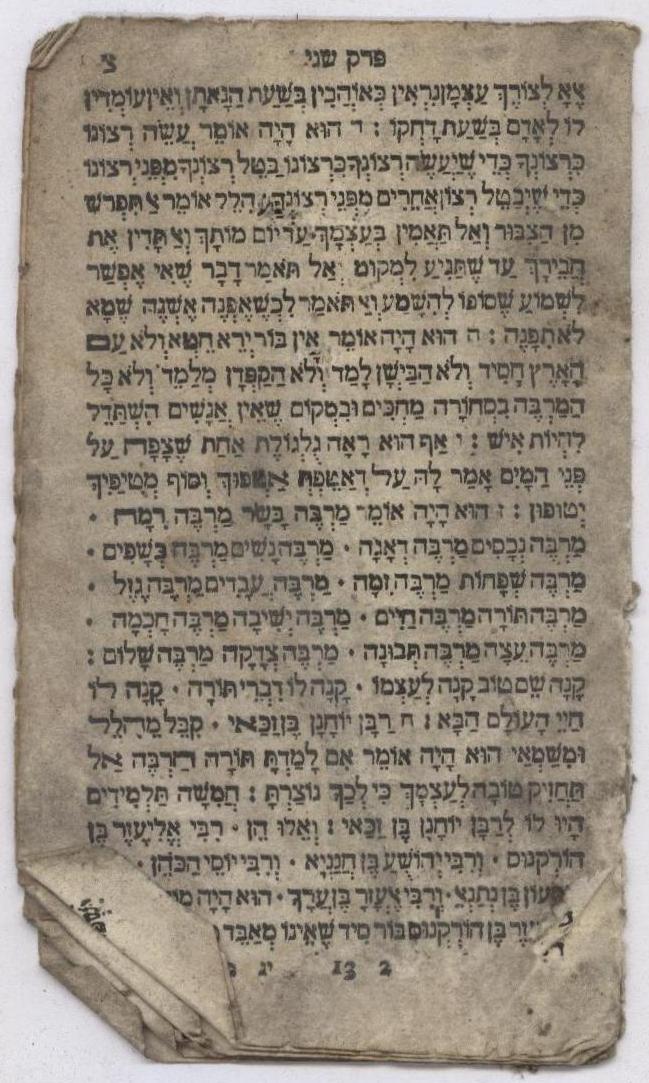 פרק שני
צ
אֶלָּא לְצוֹרֶךְ עַצְמָן נִרְאִין כְּאוֹהֲבִין בְּשַׁעַת הַנָּאתָן וְאֵין עוֹמְדִין
לוֹ לְאָדָם בְּשַׁעַת דָּחְקוֹ : ד הוּא הָיָה אוֹמֵר עֲשֵׂה רְצוֹנוֹ
כִּרְצוֹנְךָ כְּדֵי שֶׁיַּעֲשֶׂה רְצוֹנְךָ כִּרְצוֹנוֹ בַּטֵּל רְצוֹנְךָ מִפְּנֵי רְצוֹנוֹ
כְּדֵי שֶׁיְּבַטֵּל רְצוֹן אֲחֵרִים מִפְּנֵי רְצוֹנֶךָ הִלֵּל אוֹמֵר אַל תִּפְרֹשׁ
מִן הַצִּבּוּר וְאַל תַּאֲמִין בְּעַצְמְךָ עַד יוֹם מוֹתָךְ וְאַל תָּדִין אֶת
חֲבֵירָךְ עַד שֶׁתַּגִּיעַ לִמְקוֹמוֹ וְאַל תֹּאמַר דָּבָר שֶׁאִי אֶפְשַׁר
לִשְׁמוֹעַ שֶׁסּוֹפוֹ לְהִשָּׁמַע וְאַל תֹּאמַר לִכְשֶׁאֶפָּנֶה אֶשְׁנֶה שֶׁמָּא
לֹא תִפָּנֶה : ה הוּא הָיָה אוֹמֵר אֵין בּוּר יְרֵא חֵטְא וְלֹא עַם
הָאָרֶץ חָסִיד וְלֹא הַבַּיְשָׁן לָמֵד וְלֹא הַקַּפְּדָן מְלַמֵּד וְלֹא כָּל
הַמַּרְבֶּה בִסְחוֹרָה מַחְכִּים וּבִמְקוֹם שֶׁאֵין אֲנָשִׁים הִשְׁתַּדֵּל
לִהְיוֹת אִישׁ : ו אַף הוּא רָאָה גֻּלְגּוֹלֶת אַחַת שֶׁצָּפָה עַל
פְּנֵי הַמַּיִם אָמַר לָהּ עַל דְּאַטֵפְתְּ אַטְפוּךְ וְסוֹף מְטִיפַיִךְ
יְטוּפוּן : ז הוּא הָיָה אוֹמֵר מַרְבֶּה בָּשָׂר מַרְבֶּה רִמָּה •
מַרְבֶּה נְכָסִים מַרְבֶּה דְאָגָה • מַרְבֶּה נָשִׁים מַרְבֶּה כְּשָׁפִים •
מַרְבֶּה שְׁפָחוֹת מַרְבֶּה זִמָּה • מַרְבֶּה עֲבָדִים מַרְבֶּה גָזֵל •
מַרְבֶּה תּוֹרָה מַרְבֶּה חַיִּים • מַרְבֶּה יְשִׁיבָה מַרְבֶּה חָכְמָה •
מַרְבֶּה עֵצָה מַרְבֶּה תְּבוּנָה • מַרְבֶּה צְדָקָה מַרְבֶּה שָׁלוֹם :
קָנָה שֵׁם טוֹב קָנָה לְעַצְמוֹ • קָנָה לוֹ דִבְרֵי תוֹרָה • קָנָה לוֹ
חַיֵּי הָעוֹלָם הַבָּא : ח רַבָּן יוֹחָנָן בֶּן זַכַּאי • קִבֵּל מֵהִלֵּל
וּמִשַּׁמַּאי הוּא הָיָה אוֹמֵר אִם לָמַדְתָּ תּוֹרָה הַרְבֵּה אַל
תַּחֲזִיק טוֹבָה לְעַצְמָךְ כִּי לְכַךְ נוֹצַרְתָּ : חֲמִשָּׁה תַלְמִידִים
הָיוּ לוֹ לְרַבָּן יוֹחָנָן בֶּן זַכַּאי : וְאֵלּוּ הֵן • רִבִּי אֱלִיעֶזֶר בֶּן
הוֹרְקְנוּס • וְרִבִּי יְהוֹשֻׁעַ בֶּן חֲנַנְיָא • וְרִבִּי יוֹסֵי הַכֹּהֵן •
בֶּן נְתַנְאֵל • וְרִבִּי אֶלְעָזָר בֶּן עֲרָךְ • הוּא הָיָה
בֶּן הוֹרְקְנוּס בּוֹר סִיד שֶׁאֵינוֹ מְאַבֵּד
יג 13 2